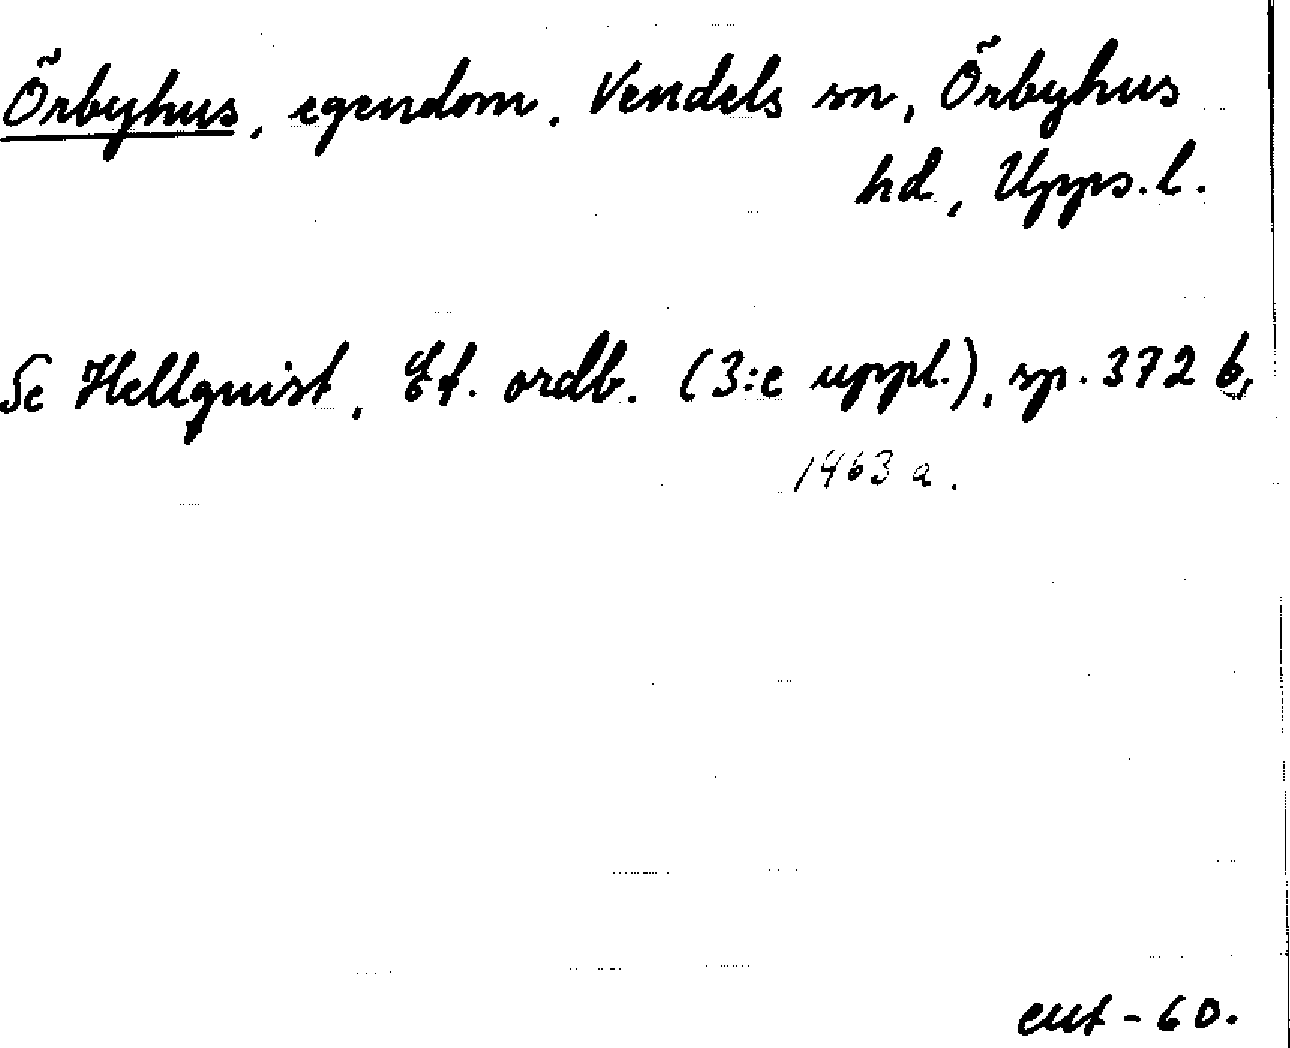 Örbyhus, egendom. Vendels sn, Örbyhus
hd, Upps. l.
Se Hellquist, Et. ordb. (3:e uppl.), sp. 372 b,
1463 a.
eut - 60.